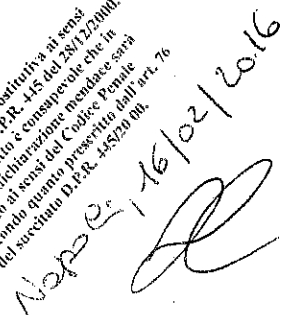 ostitutiva ai sensi
.P.R. 445 del 28/12/2000.
to e consapevole che in
dichiarazione mendace sarà
o ai sensi del Codice Penale
condo quanto prescritto dall'art. 76
del succitato D.P.R. 445/20 00.
Napoli, 16/02/2016